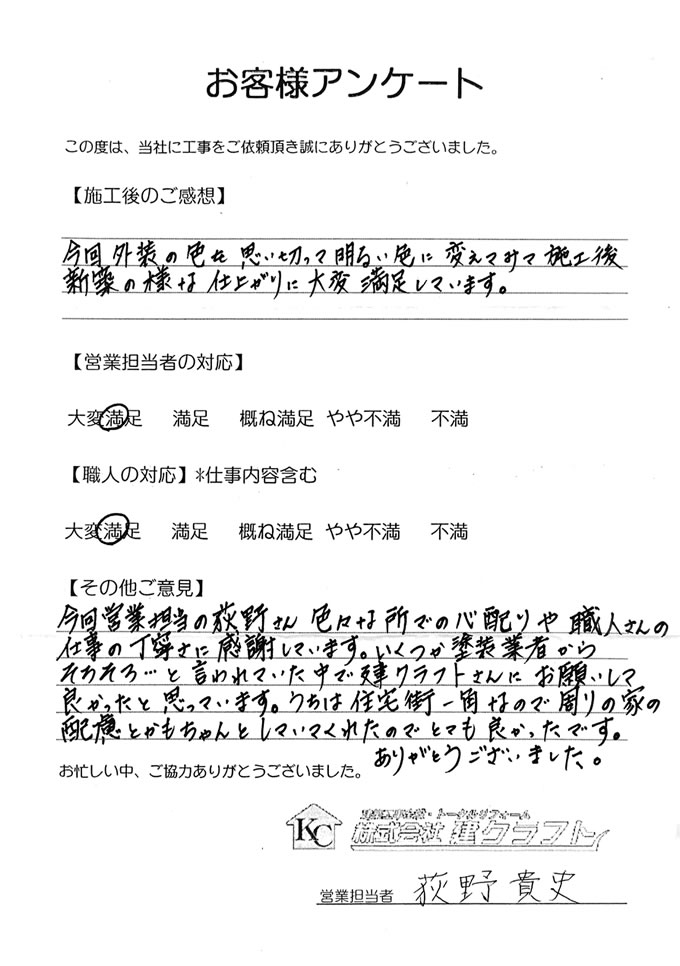 お客様アンケート
この度は、当社に工事をご依頼頂き誠にありがとうございました。
【施工後のご感想】
今回外装の色を思い切って明るい色に変えてみて施工後
新築の様な仕上がりに大変満足しています。
【営業担当者の対応】
大変満足 満足 概ね満足 やや不満 不満
【職人の対応】*仕事内容含む
大変満足 満足 概ね満足 やや不満 不満
【その他ご意見】
今回営業担当の荻野さん色々な所での心配りや職人さんの
仕事の丁寧さに感謝しています。いくつか塗装業者から
そろそろ…と言われていた中で建クラフトさんにお願いして
良かったと思っています。うちは住宅街一角なので周りの家の
配慮とかもちゃんとしていてくれたのでとても良かったです。
ありがとうございました。
お忙しい中、ご協力ありがとうございました。
KC
株式会社 建クラフト
営業担当者 荻野貴史